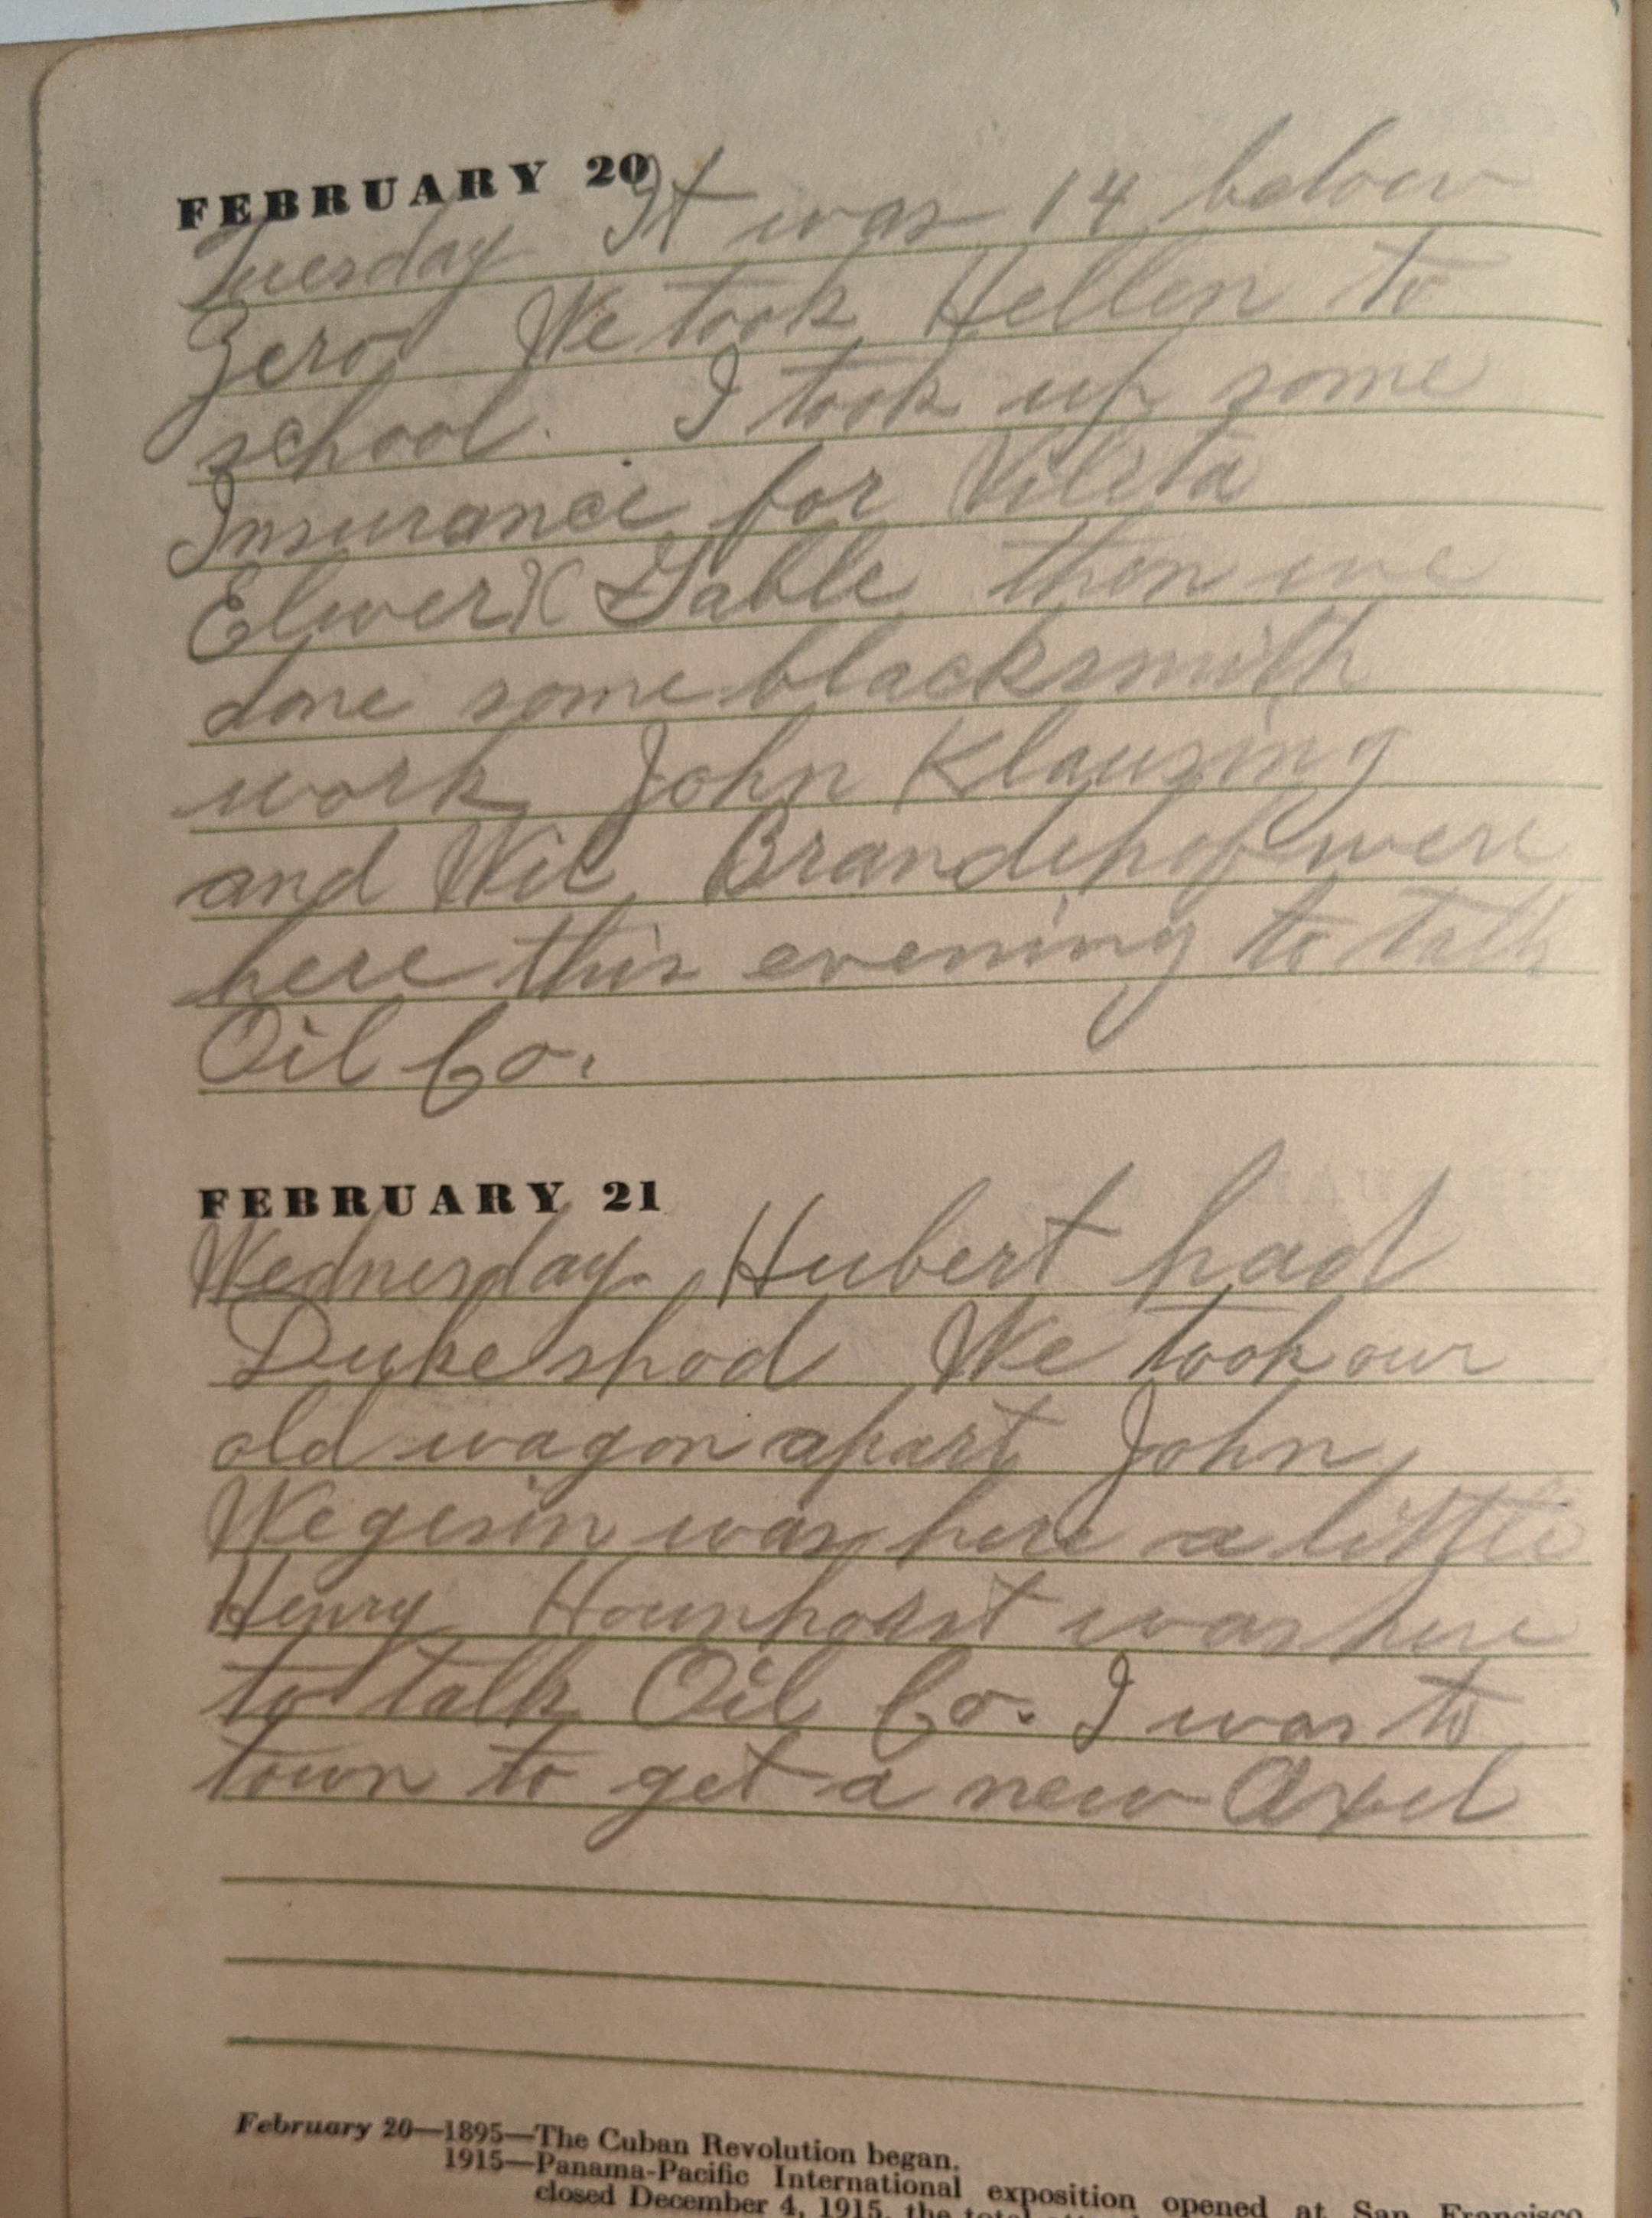 FEBRUARY 20 It was 14 below
Tuesday
Zero We took Hellen to
school. I took up some
Insurance for
Elwer Gable then we
done some blacksmith
work John Klausing
and Wil Brandehof were
here this evening to talk
Oil Co.
FEBRUARY 21
Wednesday. Hubert had
Duke shod We took our
old wagon apart John
Wegesin was here a little
Henry Hounhorst was here
to talk Oil Co. I was to
town to get a new Axel
February 20—1895—The Cuban Revolution began.
1915—Panama-Pacific International exposition opened at San Francisco
closed December 4, 1915, the total